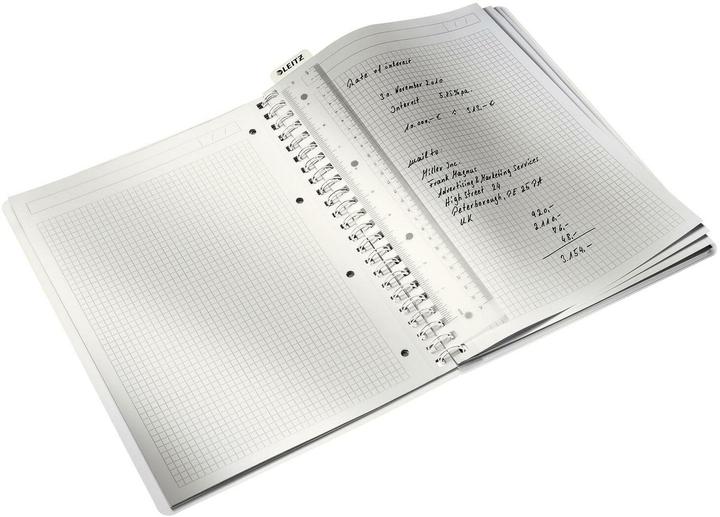 LEITZ
Date of interest
30. November 2010
Interest 5,15% pa.
10.000,-€ ÷ 312,-€
mail to:
Miller Inc.
Frank Magnus
Advertising & Marketing Services
High Street 24
Peterborough, PE 25 7A
UK
920,-
2.110,-
76,-
48,-
3.154,-